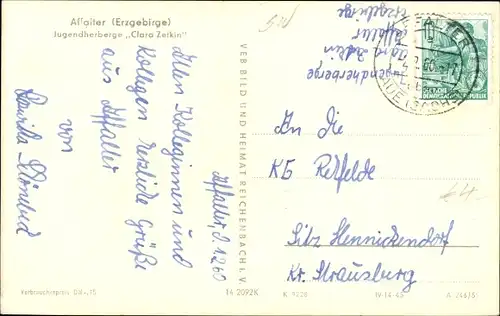 Affalter (Erzgebirge)
Jugendherberge „Clara Zetkin“
Affalter, d. 1.2.60
Allen Kolleginnen und
Kollegen herzliche Grüße
aus Affalter
von
Jugendherberge
Clara Zetkin
Affalter
Erzgebirge
AFFALTER
DEUTSCHE
DEMOKRATISCHE REPUBLIK
An die
KG Rehfelde
Sitz Hennickendorf
Kr. Strausberg
VEB BILD UND HEIMAT REICHENBACH I. V.
Verbraucherpreis DM -,15
14 2092K
K 1220
IV-14-45